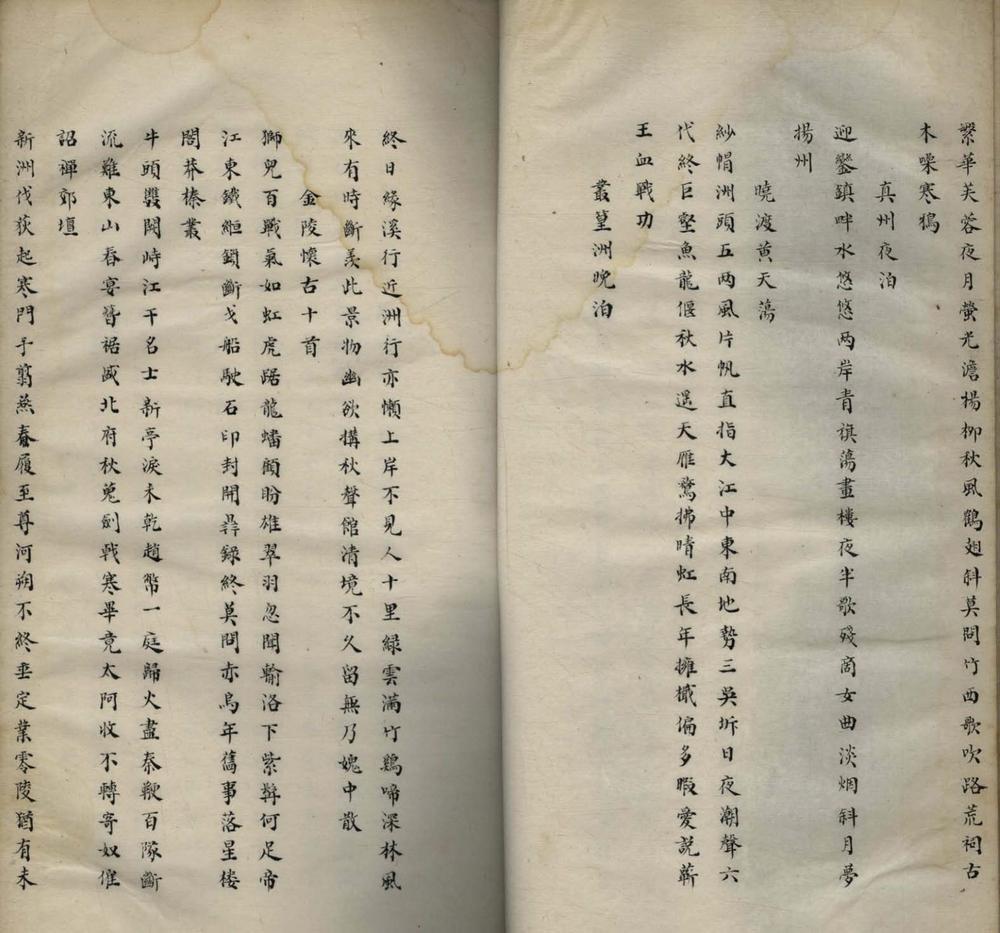 繁華芙蓉夜月螢光澹楊柳秋風鶴翅斜莫問竹西歌吹路荒祠古
木噪寒鴉
真州夜泊
迎鑾鎮畔水悠悠两岸青旗蕩畫樓夜半歌殘商女曲淡烟斜月夢
揚州
曉渡黃天蕩
紗帽洲頭五两風片帆直指大江中東南地勢三吳坼日夜潮聲六
代終巨壑魚龍偃秋水遥天雁鶩拂晴虹長年擁檝偏多暇愛説蘄
王血戰功
叢篁洲晚泊
終日緣溪行近洲行亦懶上岸不見人十里綠雲滿竹鷄啼深林風
來有時斷羨此景物幽欲搆秋聲館清境不久留無乃媿中散
金陵懷古十首
獅兒百戰氣如虹虎踞龍蟠顧盼雄翠羽忽聞輸洛下紫髯何足帝
江東鐵絙鎖斷戈船駛石印封開尋錄終莫問赤烏年舊事落星樓
閣莽榛叢
牛頭雙闕峙江干名士新亭淚未乾趙幣一庭歸火盡秦鞭百隊斷
流難東山春宴簪裾盛北府秋蒐劍戟寒畢竟太阿收不轉寄奴催
詔禪郊壇
新洲伐荻起寒門予翦燕秦履至尊河朔不終垂定業零陵猶有未